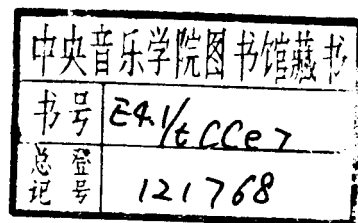 中央音乐学院图书馆藏书
书号 E4.1/tCCe7
总登记号 121768